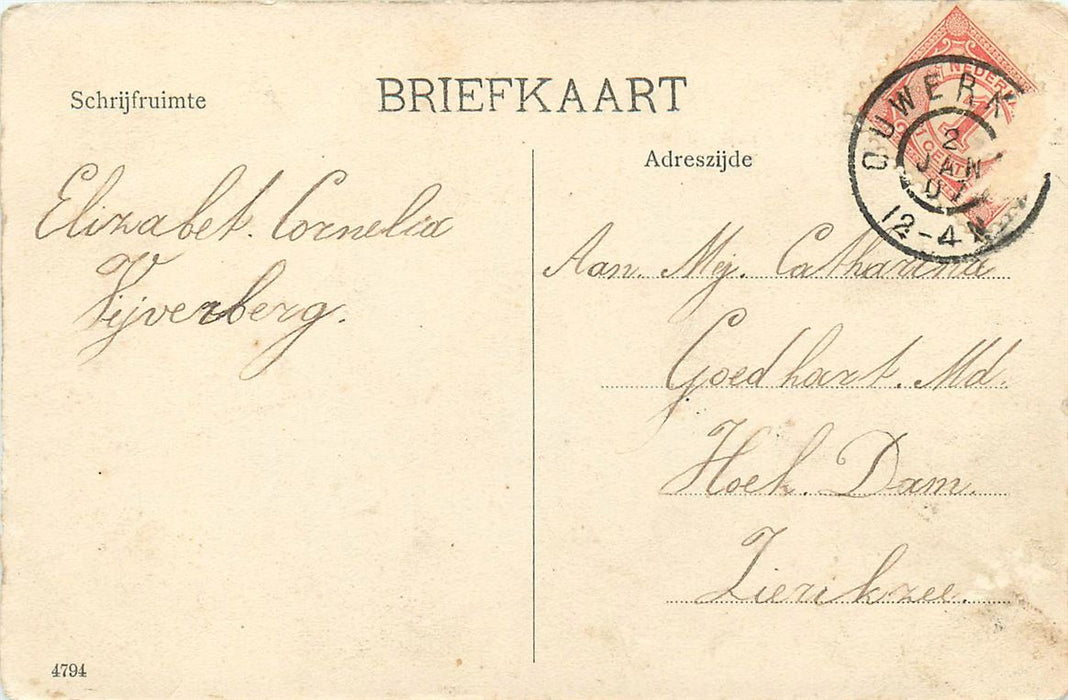 Schrijfruimte
BRIEFKAART
Adreszijde
NEDER
1
OUWERK
2
JAN
07
12-4N
Elizabet. Cornelia
Vijverberg.
Aan. Mej. Catharina
Goedhart. Md.
Hoek. Dam.
Zierikzee.
4794